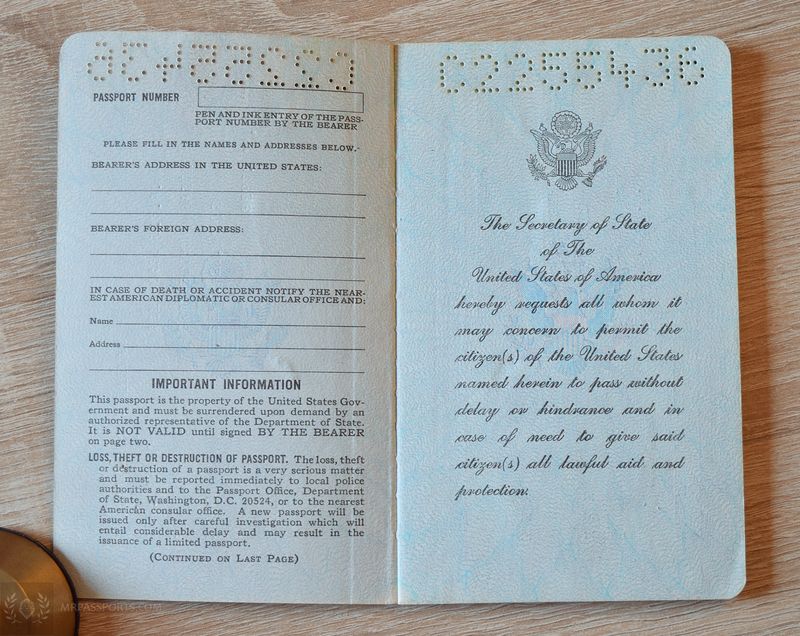 PASSPORT NUMBER
PEN AND INK ENTRY OF THE PASS-
PORT NUMBER BY THE BEARER
PLEASE FILL IN THE NAMES AND ADDRESSES BELOW.
BEARER'S ADDRESS IN THE UNITED STATES:
BEARER'S FOREIGN ADDRESS:
IN CASE OF DEATH OR ACCIDENT NOTIFY THE NEAR-
EST AMERICAN DIPLOMATIC OR CONSULAR OFFICE AND:
Name
Address
IMPORTANT INFORMATION
This passport is the property of the United States Gov-
ernment and must be surrendered upon demand by an
authorized representative of the Department of State.
It is NOT VALID until signed BY THE BEARER
on page two.
LOSS, THEFT OR DESTRUCTION OF PASSPORT. The loss, theft
or destruction of a passport is a very serious matter
and must be reported immediately to local police
authorities and to the Passport Office, Department
of State, Washington, D.C. 20524, or to the nearest
American consular office. A new passport will be
issued only after careful investigation which will
entail considerable delay and may result in the
issuance of a limited passport.
(CONTINUED ON LAST PAGE)
C2255436
The Secretary of State
of The
United States of America
hereby requests all whom it
may concern to permit the
citizen(s) of the United States
named herein to pass without
delay or hindrance and in
case of need to give said
citizen(s) all lawful aid and
protection.
MRPASSPORTS.COM